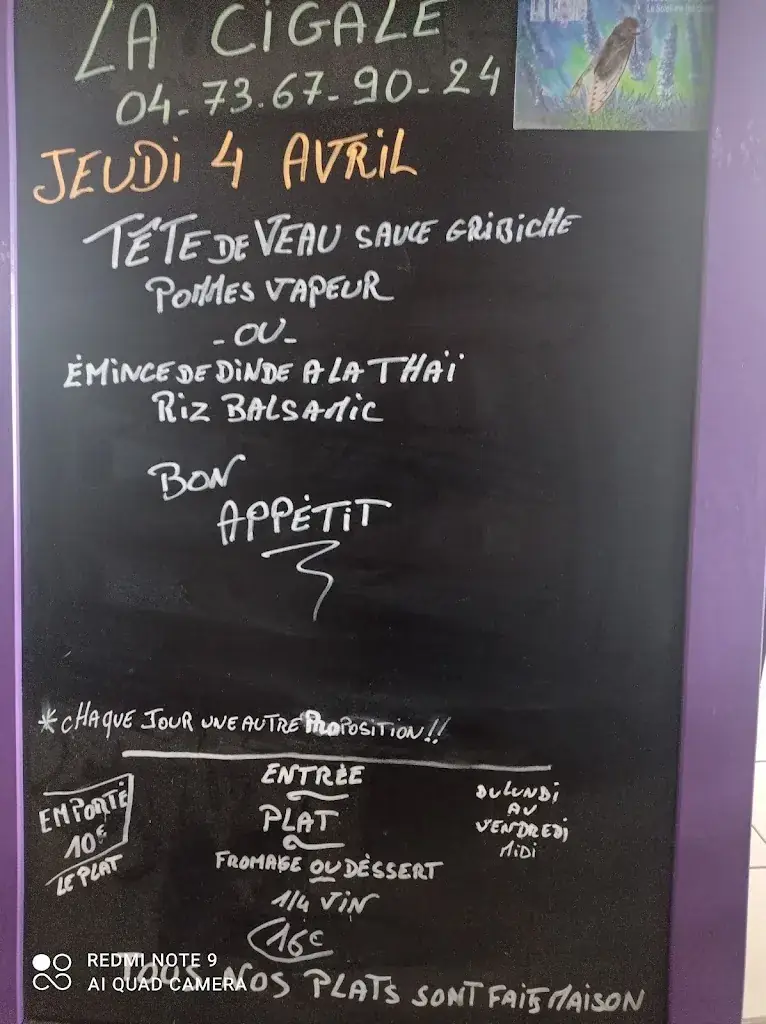 LA CIGALE
04-73.67-90-24
JEUDI 4 AVRIL
TÊTE DE VEAU SAUCE GRIBICHE
POMMES VAPEUR
- OU -
ÉMINCE DE DINDE A LA THAÏ
RIZ BALSAMIC
BON
APPÉTIT
*CHAQUE JOUR UNE AUTRE PROPOSITION!!
EMPORTÉ
10€
LE PLAT
ENTRÉE
PLAT
FROMAGE OU DÉSSERT
1/4 VIN
16€
DU LUNDI
AU
VENDREDI
MIDI
TOUS NOS PLATS SONT FAITS MAISON
REDMI NOTE 9
AI QUAD CAMERA